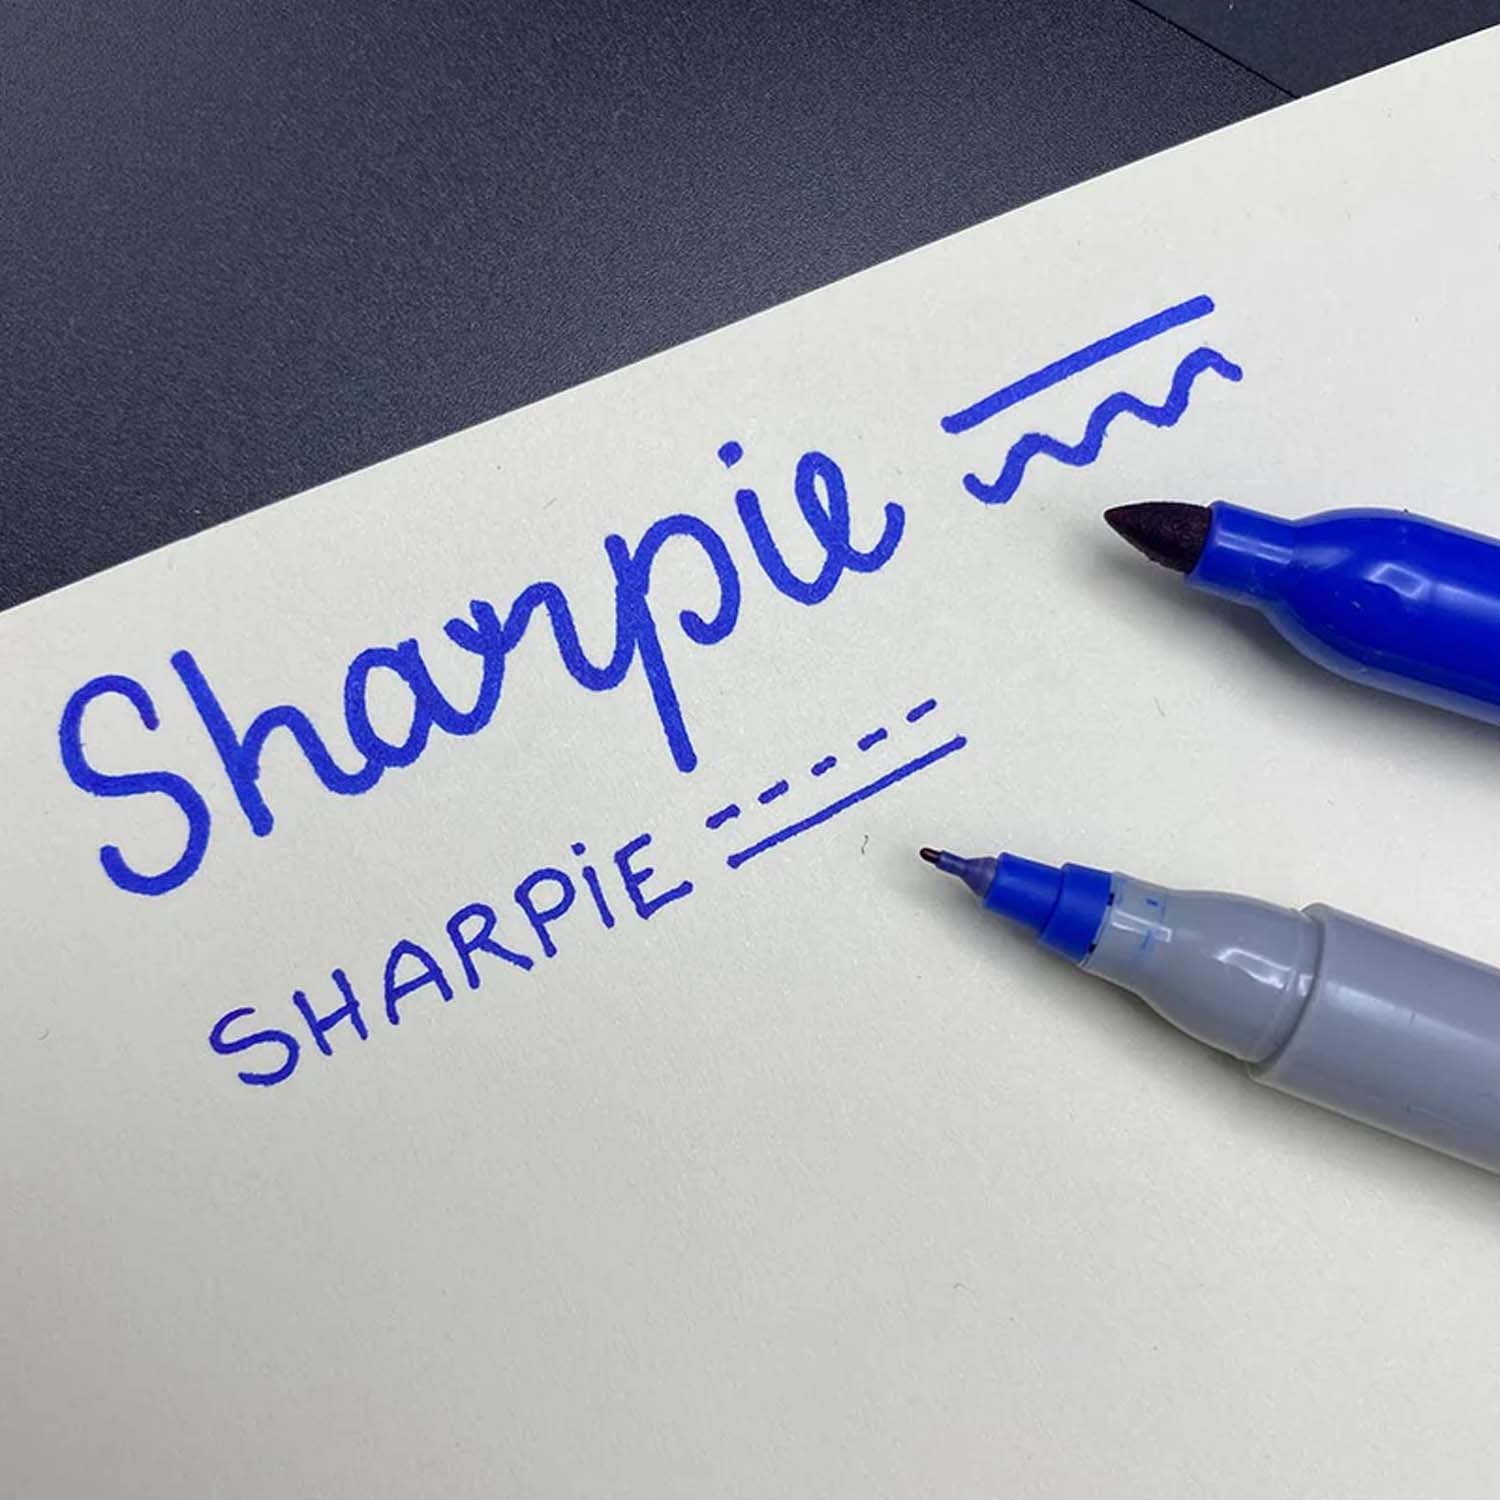 Sharpie
SHARPiE